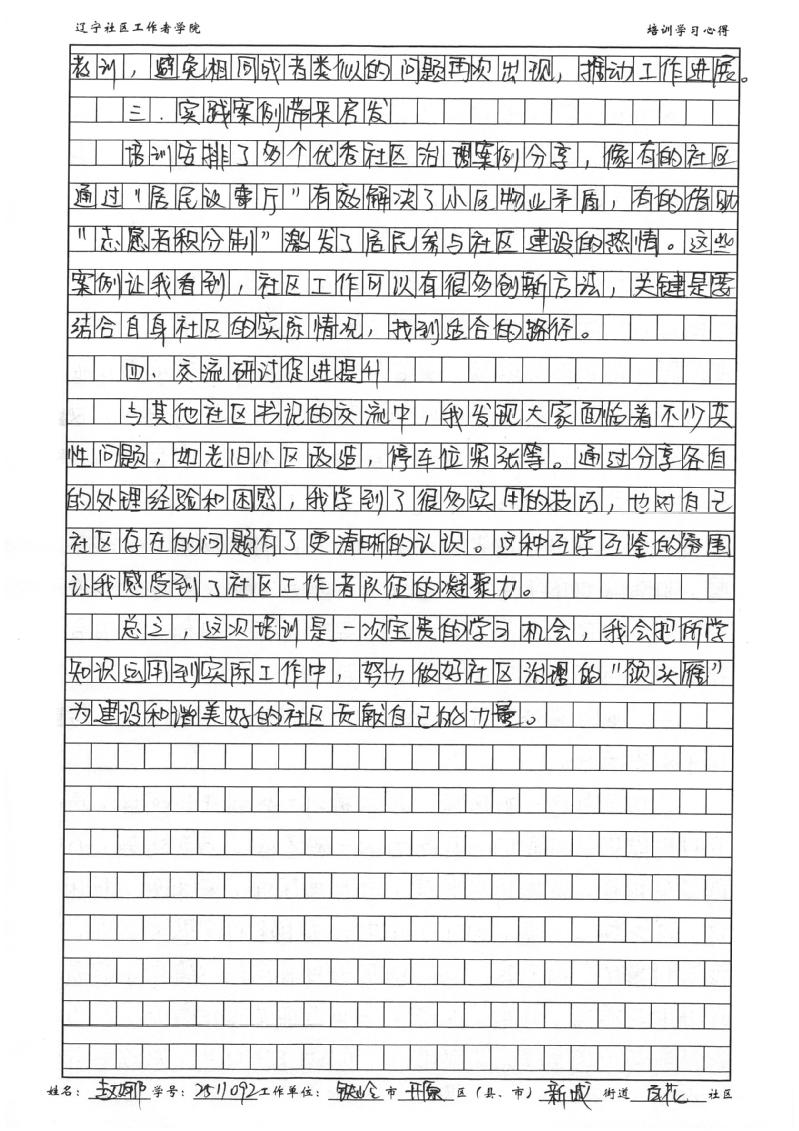 辽宁社区工作者学院 培训学习心得
教训，避免相同或者类似的问题再次出现，推动工作进展。
三．实践案例带来启发
培训安排了多个优秀社区治理案例分享，像有的社区
通过“居民议事厅”有效解决了小区物业矛盾，有的借助
“志愿者积分制”激发了居民参与社区建设的热情。这些
案例让我看到，社区工作可以有很多创新方法，关键是要
结合自身社区的实际情况，找到适合的路径。
四、交流研讨促进提升
与其他社区书记的交流中，我发现大家面临着不少共
性问题，如老旧小区改造，停车位紧张等。通过分享各自
的处理经验和困惑，我学到了很多实用的技巧，也对自己
社区存在的问题有了更清晰的认识。这种互学互鉴的氛围
让我感受到了社区工作者队伍的凝聚力。
总之，这次培训是一次宝贵的学习机会，我会把所学
知识运用到实际工作中，努力做好社区治理的“领头雁”
为建设和谐美好的社区贡献自己的力量。
姓名：赵娜 学号：2511092 工作单位：铁岭 市 开原 区（县、市） 新城 街道 百花 社区